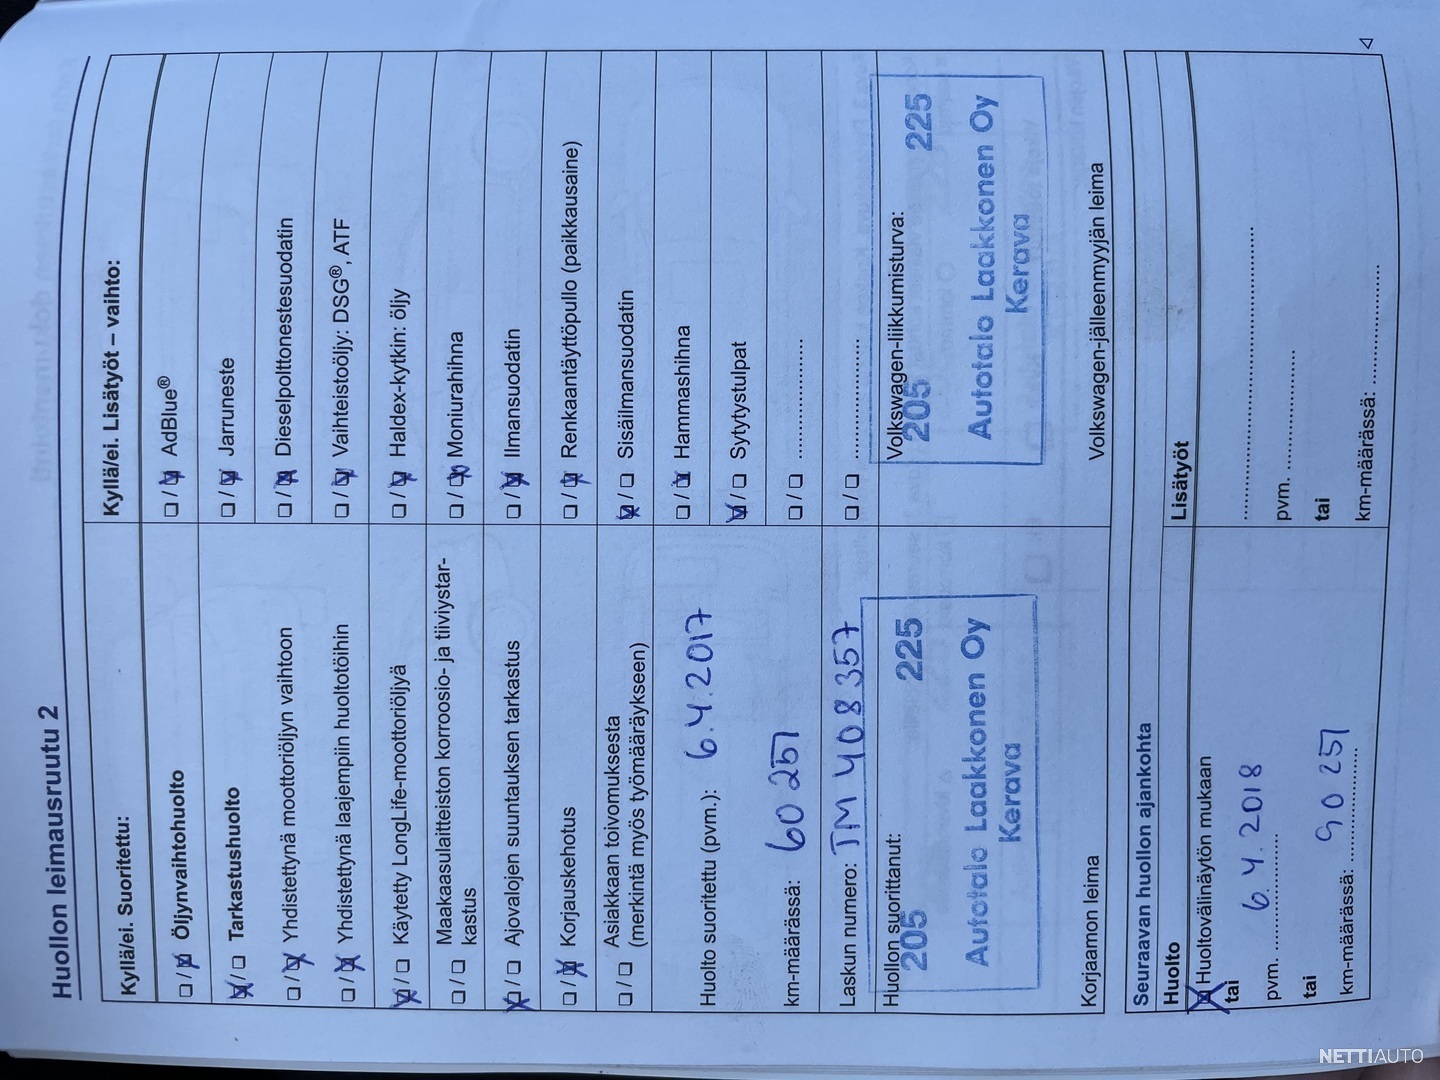 Huollon leimausruutu 2
Kyllä/ei. Suoritettu:
☐/☒ Öljynvaihtohuolto
☒/☐ Tarkastushuolto
☐/☒ Yhdistettynä moottoriöljyn vaihtoon
☐/☒ Yhdistettynä laajempiin huoltotöihin
☒/☐ Käytetty LongLife-moottoriöljyä
☐/☐ Maakaasulaitteiston korroosio- ja tiiviystar-
kastus
☒/☐ Ajovalojen suuntauksen tarkastus
☐/☒ Korjauskehotus
☐/☐ Asiakkaan toivomuksesta
(merkintä myös työmääräykseen)
Huolto suoritettu (pvm.): 6.4.2017
km-määrässä: 60 251
Laskun numero: TM 408357
Huollon suorittanut:
205 225
Autotalo Laakkonen Oy
Kerava
Korjaamon leima
Kyllä/ei. Lisätyöt – vaihto:
☐/☒ AdBlue®
☐/☒ Jarruneste
☐/☒ Dieselpolttonestesuodatin
☐/☒ Vaihteistoöljy: DSG®, ATF
☐/☒ Haldex-kytkin: öljy
☐/☒ Moniurahihna
☐/☒ Ilmansuodatin
☐/☒ Renkaantäyttöpullo (paikkausaine)
☒/☐ Sisäilmansuodatin
☐/☒ Hammashihna
☒/☐ Sytytystulpat
☐/☐ ......................
☐/☐ ......................
Volkswagen-liikkumisturva:
205 225
Autotalo Laakkonen Oy
Kerava
Volkswagen-jälleenmyyjän leima
Seuraavan huollon ajankohta
Huolto
☒ Huoltovälinäytön mukaan
tai
pvm. 6.4.2018
tai
km-määrässä: 90 251
Lisätyöt
......................
pvm. ......................
tai
km-määrässä: ......................
NETTIAUTO